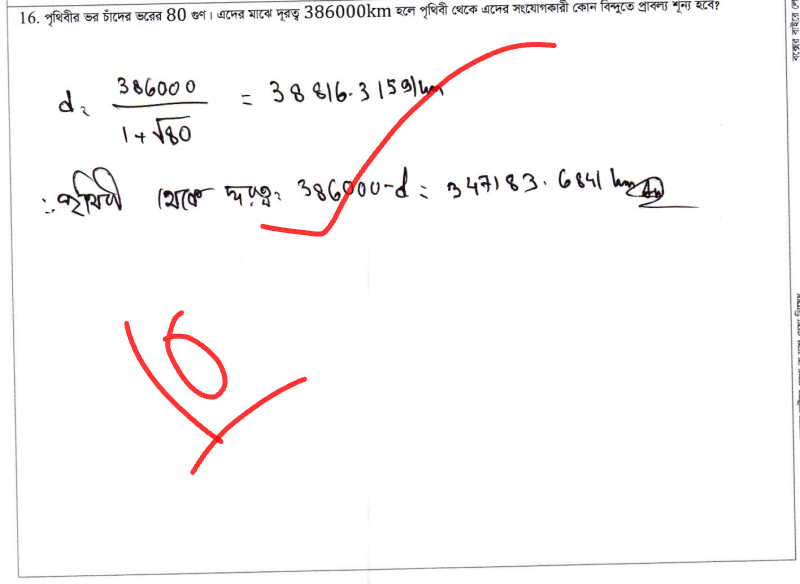 16. পৃথিবীর ভর চাঁদের ভরের 80 গুণ। এদের মাঝে দূরত্ব 386000km হলে পৃথিবী থেকে এদের সংযোগকারী কোন বিন্দুতে প্রাবল্য শূন্য হবে?
d = 386000 / 1+√80 = 38816.3159 km
∴ পৃথিবী থেকে দূরত্ব = 386000-d = 347183.6841 km